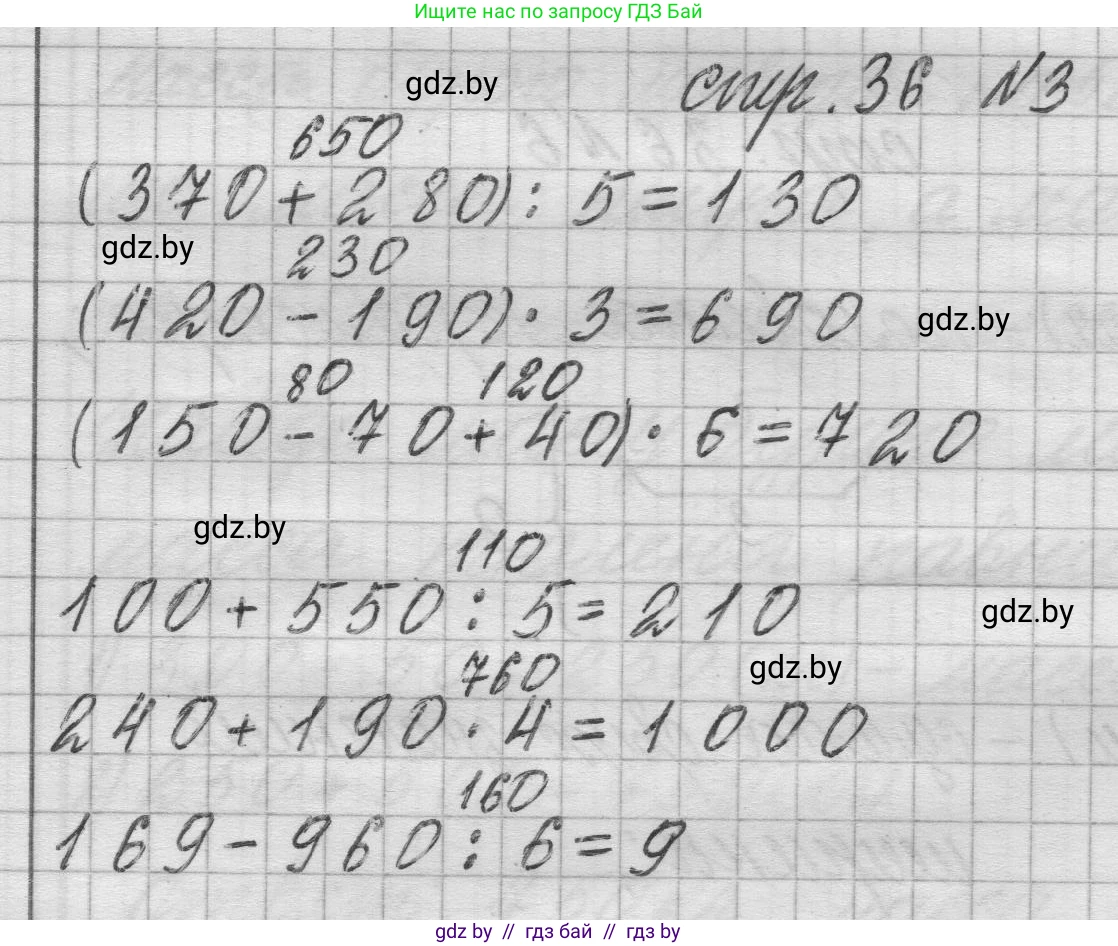 Ищите нас по запросу ГДЗ Бай
gdz.by стр. 36 №3
650
(370 + 280) : 5 = 130
gdz.by 230
(420 - 190) · 3 = 690 gdz.by
80 120
(150 - 70 + 40) · 6 = 720
gdz.by 110
100 + 550 : 5 = 210 gdz.by
760 gdz.by
240 + 190 · 4 = 1000
160
169 - 960 : 6 = 9
gdz.by // гдз бай // гдз by